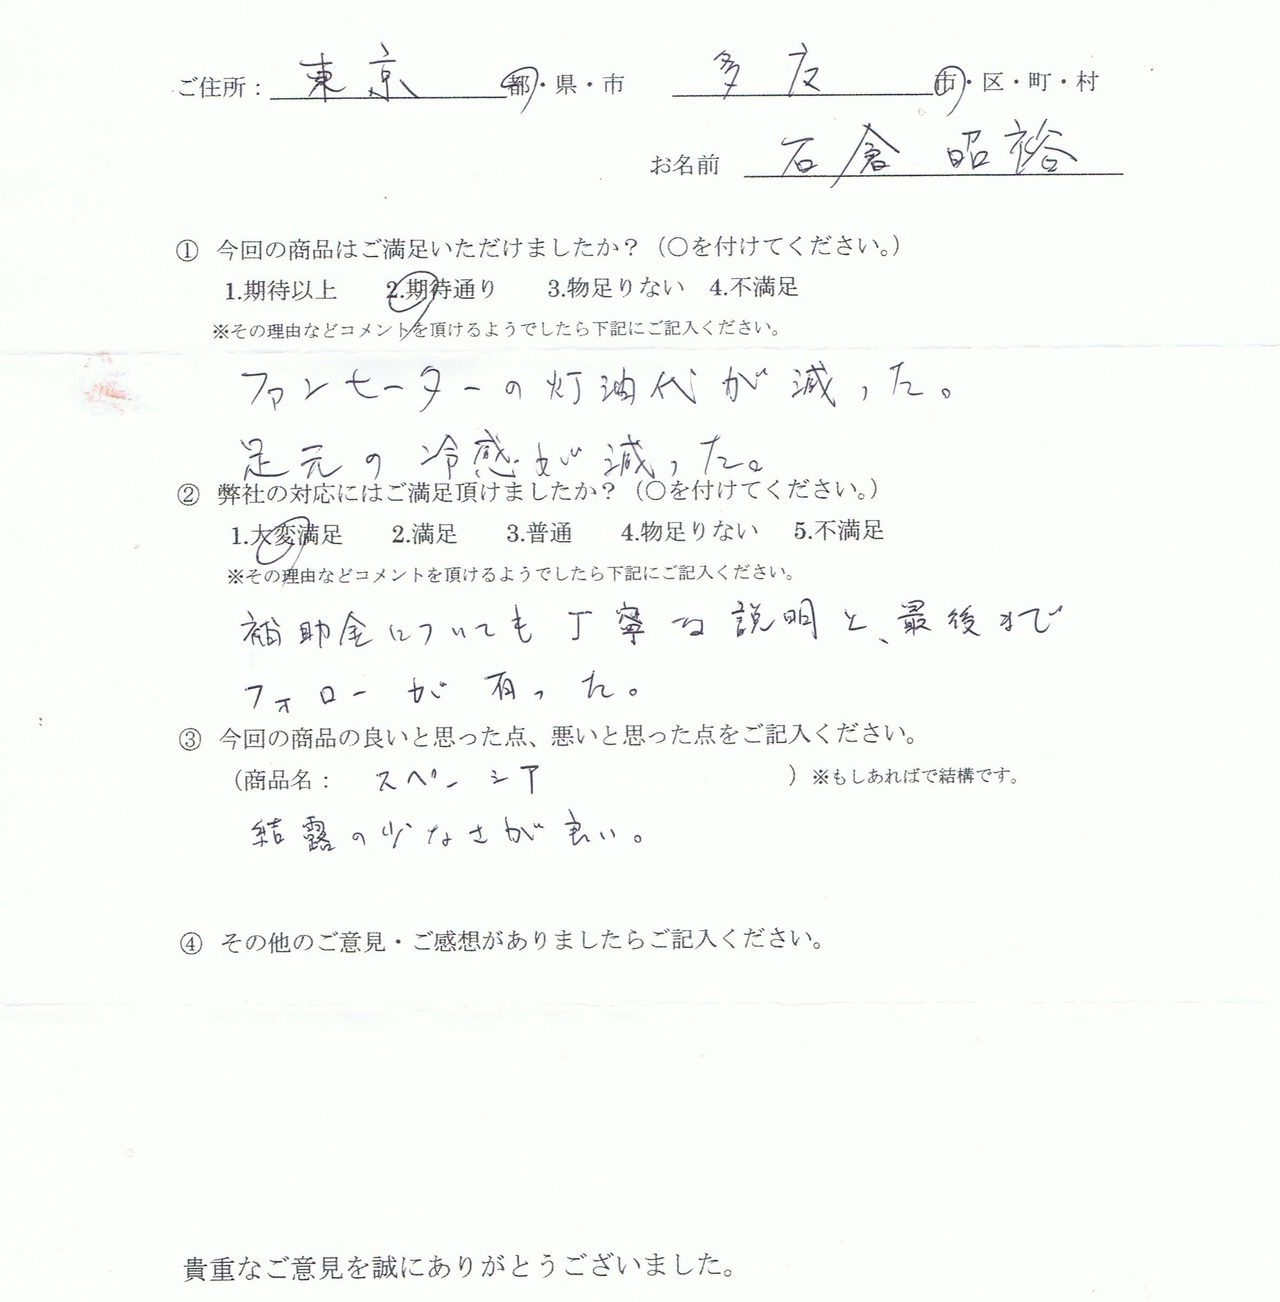 ご住所： 東京 都・県・市 多度 市・区・町・村
お名前 石倉 昭裕
① 今回の商品はご満足いただけましたか？（○を付けてください。）
1.期待以上 2.期待通り 3.物足りない 4.不満足
※その理由などコメントを頂けるようでしたら下記にご記入ください。
ファンヒーターの灯油代が減った。
足元の冷感が減った。
② 弊社の対応にはご満足頂けましたか？（○を付けてください。）
1.大変満足 2.満足 3.普通 4.物足りない 5.不満足
※その理由などコメントを頂けるようでしたら下記にご記入ください。
補助金についても丁寧な説明と、最後まで
フォローが有った。
③ 今回の商品の良いと思った点、悪いと思った点をご記入ください。
（商品名： スペーシア ）※もしあればで結構です。
結露の少なさが良い。
④ その他のご意見・ご感想がありましたらご記入ください。
貴重なご意見を誠にありがとうございました。